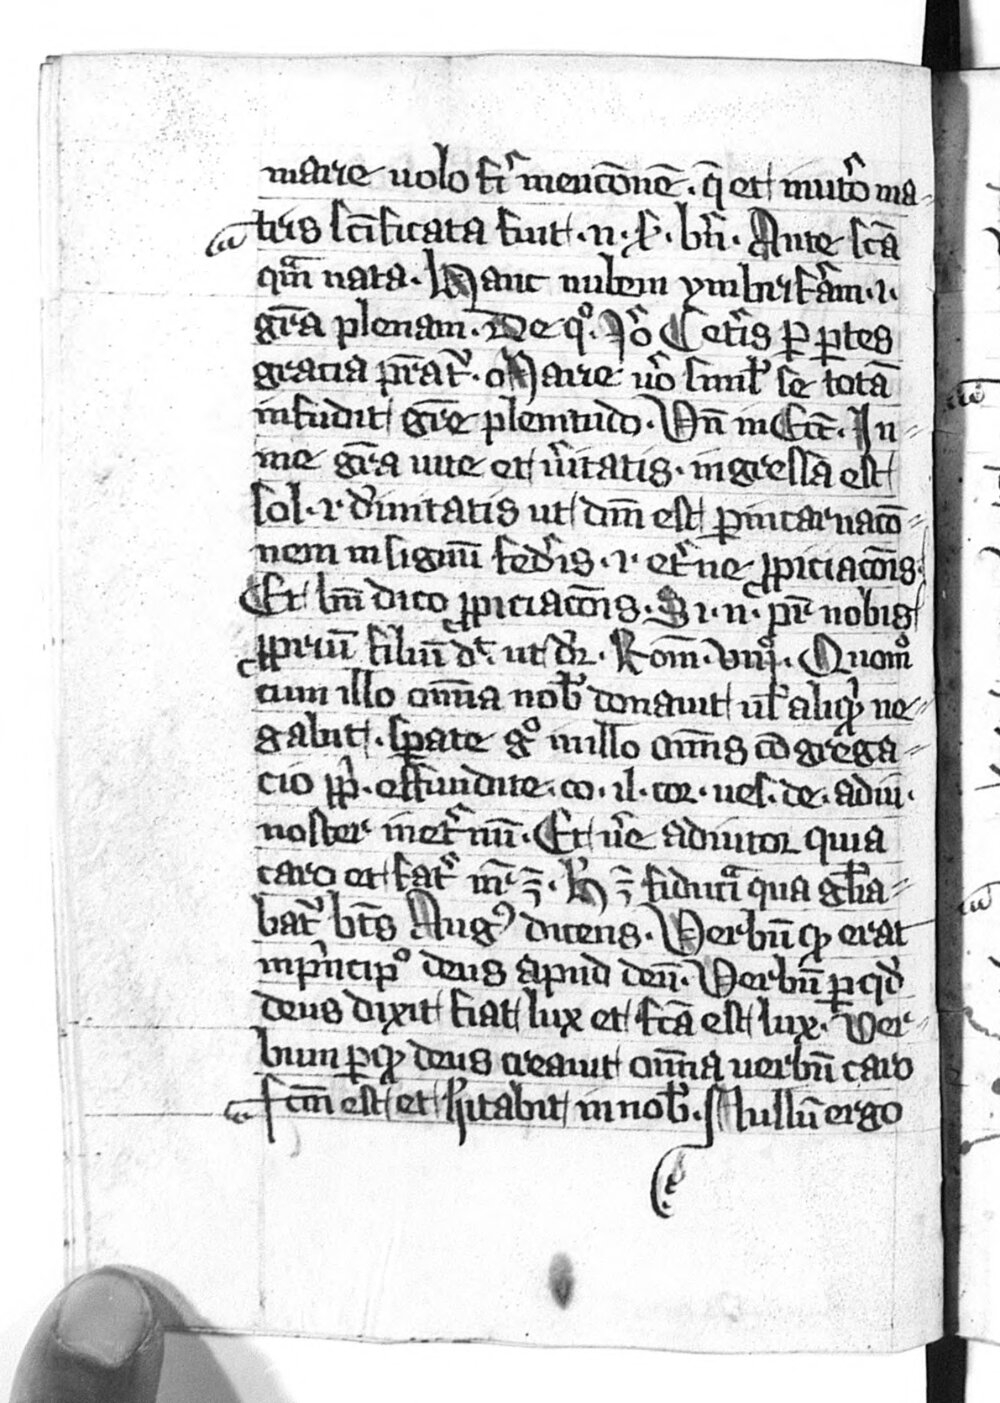 marie uolo fi͛ mencōnē. q̄ et i nut͛o ma-
tris sc̄ificata fuit .n. s. b͛n. Ante sc̄a
qm̄ nata. Hanc nubem ymbrifi͛am .i.
gr̄a plenam. De qͦ. Jͦo Cet͛is ꝑ ꝑtes
gracia pr̄at͛. Marie u͛o simil͛ se totā
infudit gr̄e plenitudo. Vn̄ in Ecc̄. In
me gr̄a uite et u͛itatis. ingressa est
sol .i. d͛initatis ut dc̄m est ꝑ incarnacō-
nem in signū fed͛is .i. et͛ne ꝓpiciacōnis.
Et bn̄ dico ꝓpiciacōnis. Si .n. pr̄ nobis
ꝓpriū filiū d̄t. ut dr̄. Rom̄. viij. Quomͦ
cum illo om̄ia nob͛ donauit ul͛ aliqͥd ne-
gabit. Sꝑate gͦ in illo om̄is cōgrega-
cio pp̄li. effundite. co. il. cor. ues. de. adiu.
noster in et͛nū. Et u͛e adiutor quia
caro et frat͛ nr̄ ē. Hec ē fiducia qua gl̄ia-
bat͛ bt̄s Aug9 dicens. Verbū qd erat
in pͥncipͦ deus apud deū. Verbū ꝑ qd͛
deus dixit fiat lux et fc̄a est lux. Ver-
bum ꝑ qd deus creauit om̄ia uerbū caro
fc̄m est et h͛itabit in nob͛. Nullū ergo